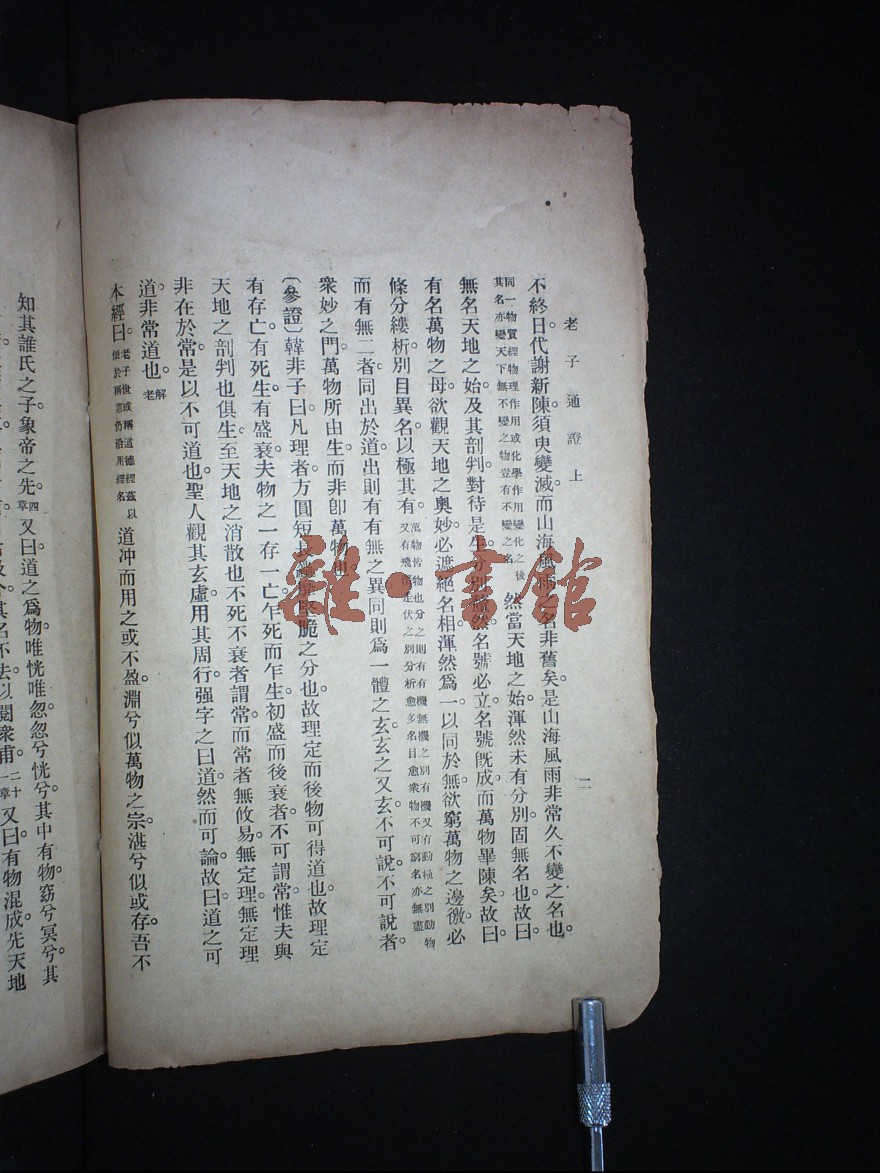 老子通證上
二
不終日。代謝新陳。須臾變滅。而山海風雨之名非舊矣。是山海風雨非常久不變之名也。
同一物質經物理作用或化學作用變化之後
其名亦變天下無不變之物豈有不變之名
然當天地之始。渾然未有分別。固無名也。故曰。
無名天地之始。及其剖判。對待是生。分別
然。名號必立。名號既成。而萬物畢陳矣。故曰。
有名萬物之母。欲觀天地之奧妙。必遮絕名相。渾然爲一。以同於無。欲窮萬物之邊徼。必
條分縷析。別目異名。以極其有。
萬物皆物也分之則有有機無機之別有機又有動植之別動物
又有飛走伏之別分析愈多名目愈衆物不可窮名亦無盡
而有無二者。同出於道。出則有有無之異。同則爲一體之玄。玄之又玄。不可說。不可說者。
衆妙之門。萬物所由生。而非卽萬物也。
〔參證〕韓非子曰。凡理者。方圓短長堅脆之分也。故理定而後物可得道也。故理定
有存亡。有死生。有盛衰。夫物之一存一亡。乍死而乍生。初盛而後衰者。不可謂常。惟夫與
天地之剖判也俱生。至天地之消散也不死不衰者謂常。而常者無攸易。無定理。無定理
非在於常。是以不可道也。聖人觀其玄虛。用其周行。强字之曰道。然而可論。故曰道之可
道。非常道也。
解老
本經曰。
老子世或稱道德經茲以
便於兩仍沿用經名
道冲而用之或不盈。淵兮似萬物之宗。湛兮似或存。吾不
知其誰氏之子。象帝之先。
四章
又曰。道之爲物。唯恍唯忽。忽兮恍兮。其中有物。窈兮冥兮。其
其名不去。以閱衆甫。
二十一章
又曰。有物混成。先天地
雜·書館